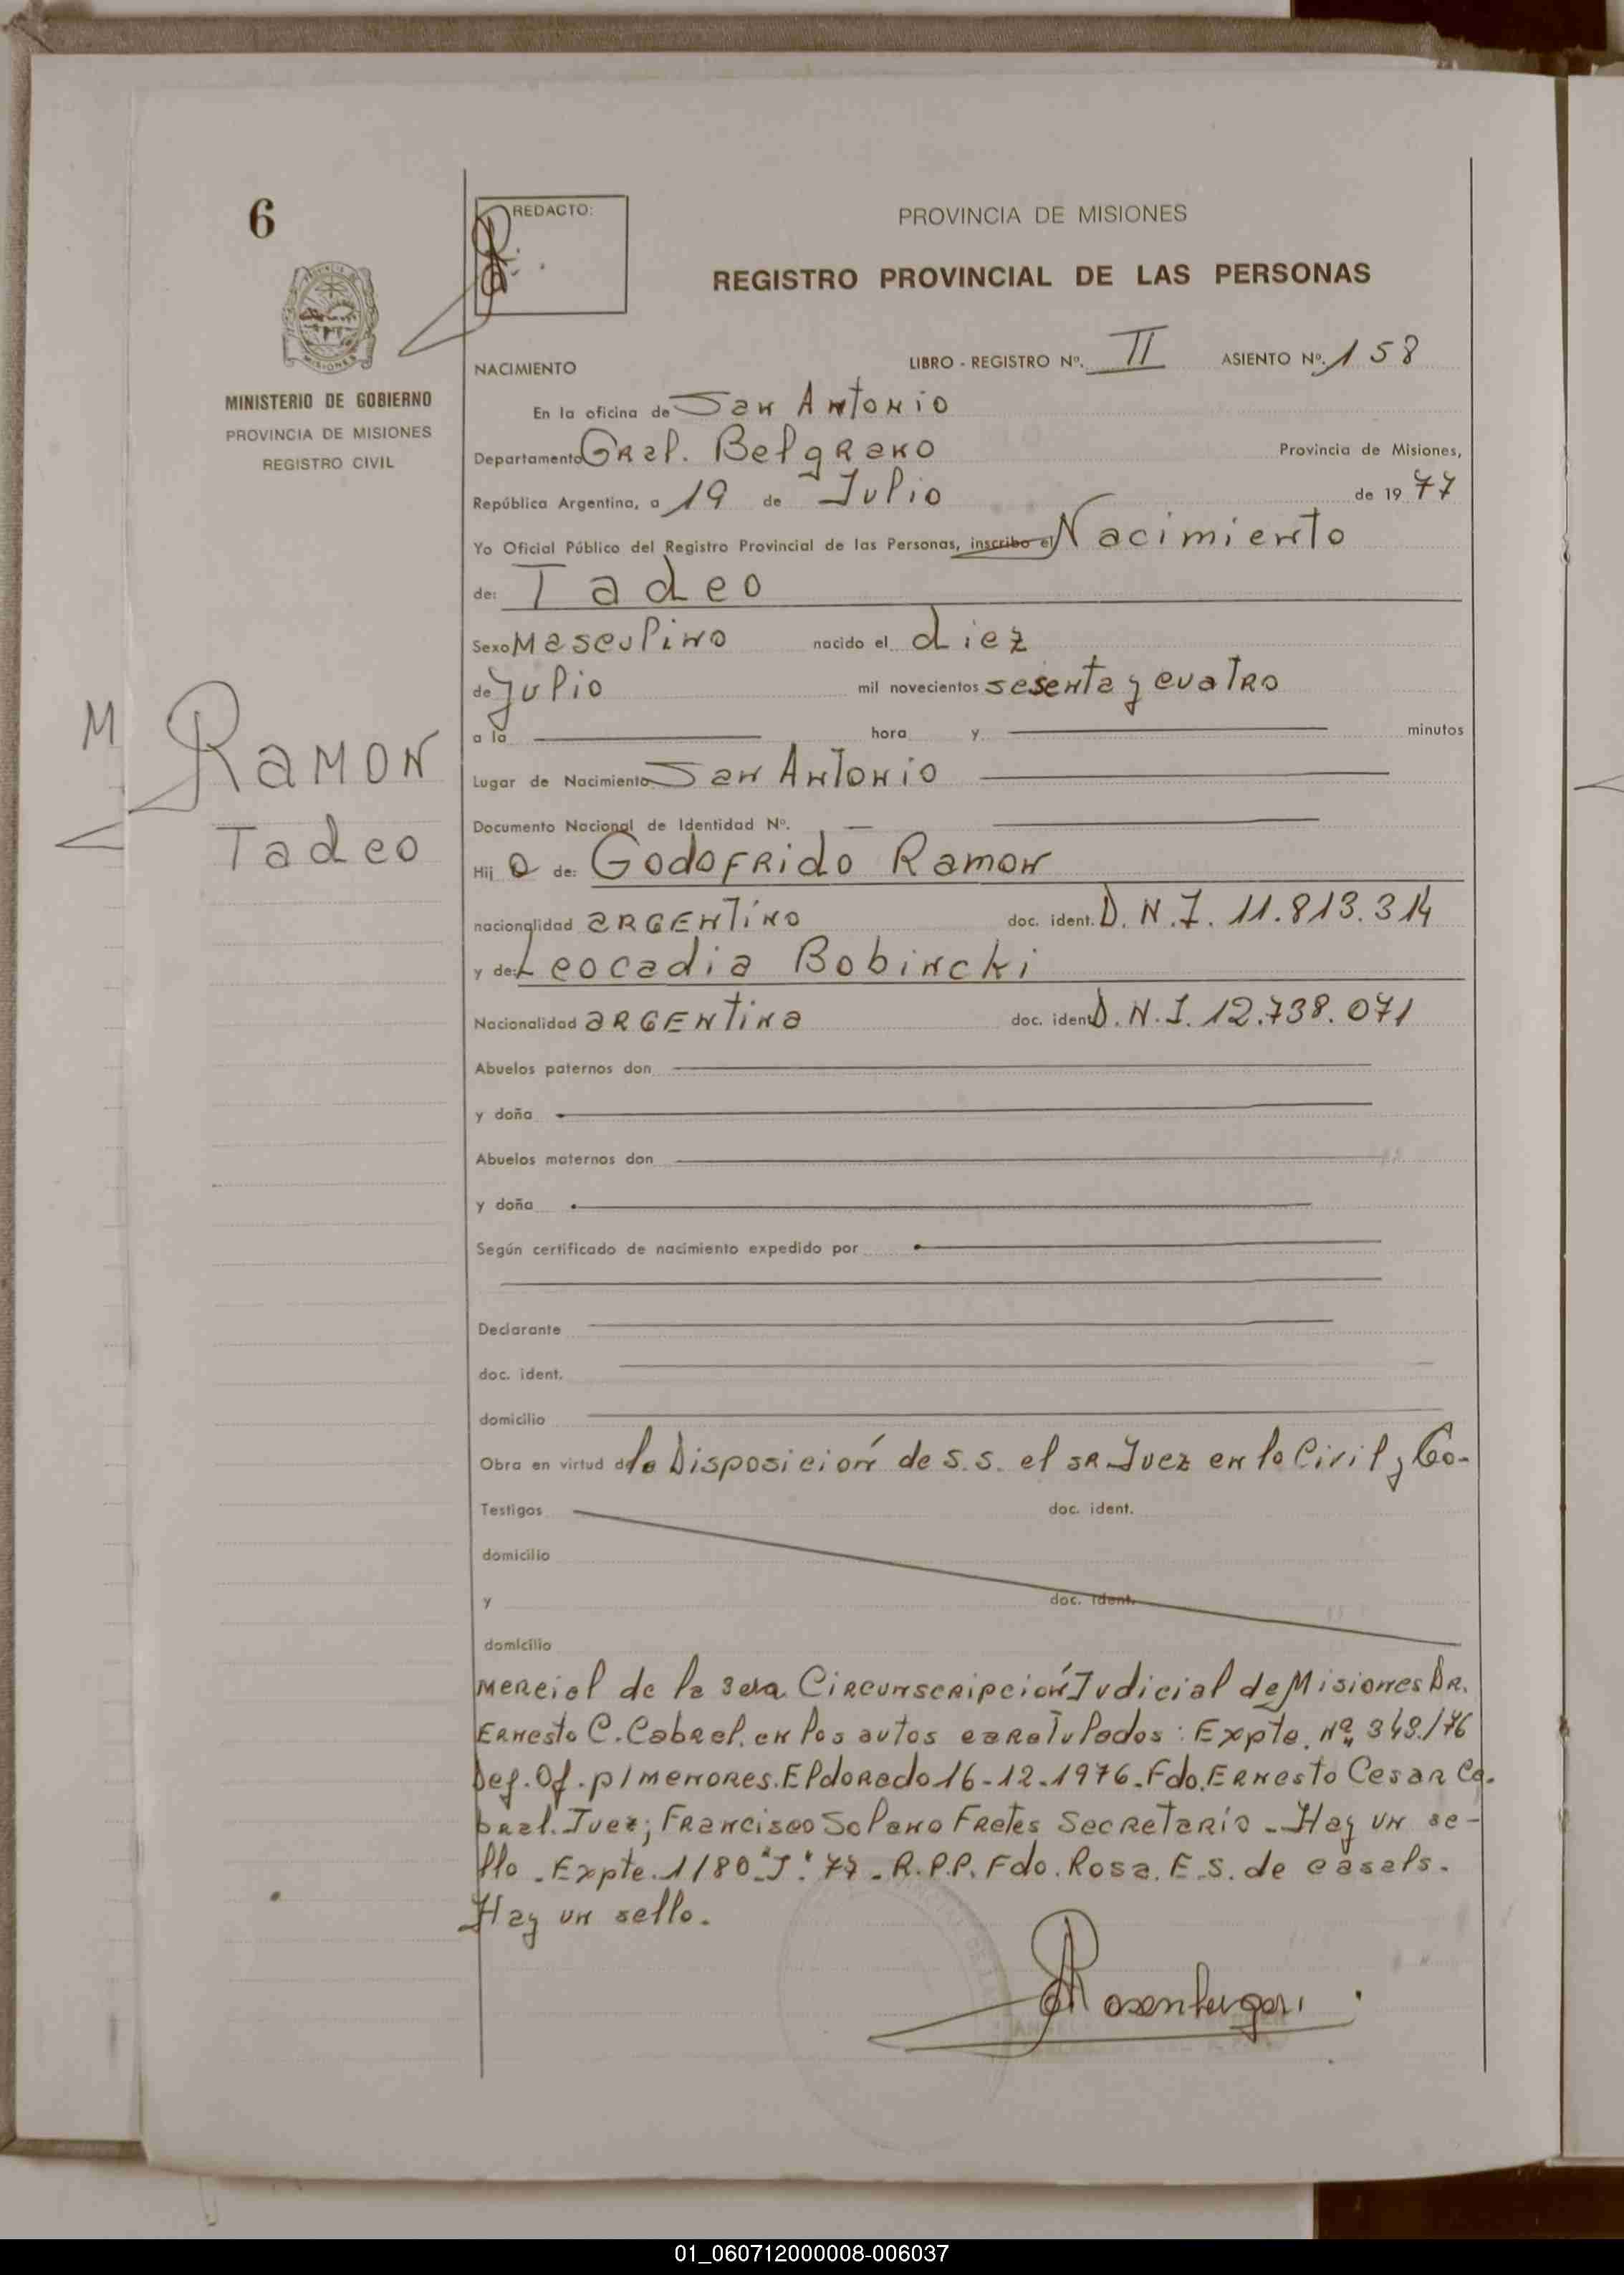 6
REDACTO:
PROVINCIA DE MISIONES
REGISTRO PROVINCIAL DE LAS PERSONAS
MISIONES
MINISTERIO DE GOBIERNO
PROVINCIA DE MISIONES
REGISTRO CIVIL
NACIMIENTO LIBRO - REGISTRO Nº. II ASIENTO Nº. 158
En la oficina de San Antonio
Departamento Gral. Belgrano Provincia de Misiones,
República Argentina, a 19 de Julio de 19 77
Yo Oficial Público del Registro Provincial de las Personas, inscribo el Nacimiento
de: Tadeo
Sexo Masculino nacido el diez
de Julio mil novecientos sesenta y cuatro
a la hora y minutos
M Ramon
Tadeo
Lugar de Nacimiento San Antonio
Documento Nacional de Identidad Nº. —
Hij o de: Godofrido Ramon
nacionalidad argentino doc. ident. D.N.I. 11.813.314
y de: Leocadia Bobincki
Nacionalidad argentina doc. ident D.N.I. 12.738.071
Abuelos paternos don
y doña
Abuelos maternos don
y doña
Según certificado de nacimiento expedido por
Declarante
doc. ident.
domicilio
Obra en virtud de la Disposición de S.S. el sr Juez en lo Civil y Co-
Testigos doc. ident.
domicilio
y doc. ident.
domicilio
mercial de la 3era Circunscripción Judicial de Misiones Dr.
Ernesto C. Cabral, en los autos caratulados: Expte. Nº 348/76
Def. Of. p/ menores. Eldorado 16-12-1976. Fdo. Ernesto Cesar Ca-
bral. Juez; Francisco Solano Fretes Secretario - Hay un se-
llo. Expte. 1180 "J" 77 - R.P.P. Fdo. Rosa. E.S. de Casals.
Hay un sello.
01_060712000008-006037